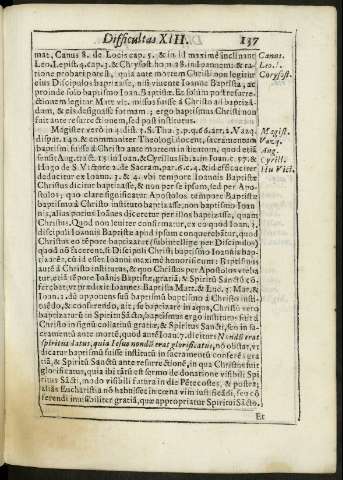 Difficultas XIII. 137
mat, Canus 8. de Locis cap. 5. & in id maximè inclinant
Leo. I. epist. 4. cap. 3. & Chrysost hom. 28. in Ioannem: & ra-
tione probari potest, quia ante mortem Christi non legitur
eius Discipulos baptizasse, nisi vivente Ioanne Baptista, ac
proinde solo baptismo Ioan. Baptistæ. Et solùm post resurre-
ctionem legitur Matt. vlt. missos fuisse à Christo ad baptizã-
dum, & eis designasse formam; ergo baptismus Christi non
fuit ante resurrectionem, sed post institutus.
Magister verò in 4. dist. 3. S. Tha. 3. p. q. 66. art. 2. Vazq.
dispat. 140. & communiter Theologi docent, sacramentum
baptismi fuisse à Christo ante mortem institutum, quod etiã
sensit Aug. tract. 15 in Ioan. & Cyrillus lib. 2. in Ioan. c. 57. &
Hugo de S. Victore 2. de Sacram. par. 6. c. 4. id efficaciter
deducitur ex Ioann. 3. & 4. vbi tempore Ioannis Baptistæ
Christus dicitur baptizasse, & non per se ipsum, sed per Apo-
stolos, quo clare significatur Apostolos tempore Baptistæ
baptismo à Christo instituto baptizasse, non baptismo Ioan-
nis, alias potius Ioannes diceretur per illos baptizasse, quam
Christus. Quod non leuiter confirmatur, ex eo quod Ioan. 3.
discipuli Ioannis Baptistæ apud ipsum conquerebãtur, quod
Christus eo tẽpore baptizaret (subintellige per Discipulos)
quod nõ facerent, si Discipuli Christi baptismo Ioannis bap-
tizarẽt, cũ id esset Ioanni maximè honorificum: Baptismus
autẽ à Christo institutus, & quo Christus per Apostolos vteba-
tur, etiã tẽpore Ioãnis Baptistæ, gratiã, & Spiritũ Sanctũ cõ-
ferebat; vt prædixit Ioannes Baptista Matt. & Luc. 3. Mar. &
Ioan. 1. dũ opponens suũ baptismũ baptismo à Christo insti-
tuẽdo, & conferendo, ait, se baptizare in aqua, Christo verò
baptizaturũ in Spiritu Sãcto, baptismus ergo institutus fuit à
Christo in signũ collatiuũ gratiæ, & Spiritus Sancti, seu in sa-
cramentũ ante mortẽ, quod autẽ Ioan. 7. dicitur Nondũ erat
spiritus datus, quia Iesus nondũ erat glorificatus, nõ obstat, vt
dicatur baptismũ fuisse institutũ in sacramentũ conferẽs gra-
tiã, & Spiritũ Sanctũ ante resurrectionẽ, in qua Christus fuit
glorificatus, quia ibi tãtũ est sermo de donatione visibili Spi-
ritus Sãcti, modo visibili futura in die Pẽtecostes, & postea;
alias eucharistia nõ habuisset in cœna vim iustificãdi, seu cõ
ferendi inuisibiliter gratiã, quæ appropriatur Spiritui Sãcto.
Et
Canus.
Leo. I.
Chrysost.
Magist.
Vazq.
Aug.
Cyrill.
Hu Vict.